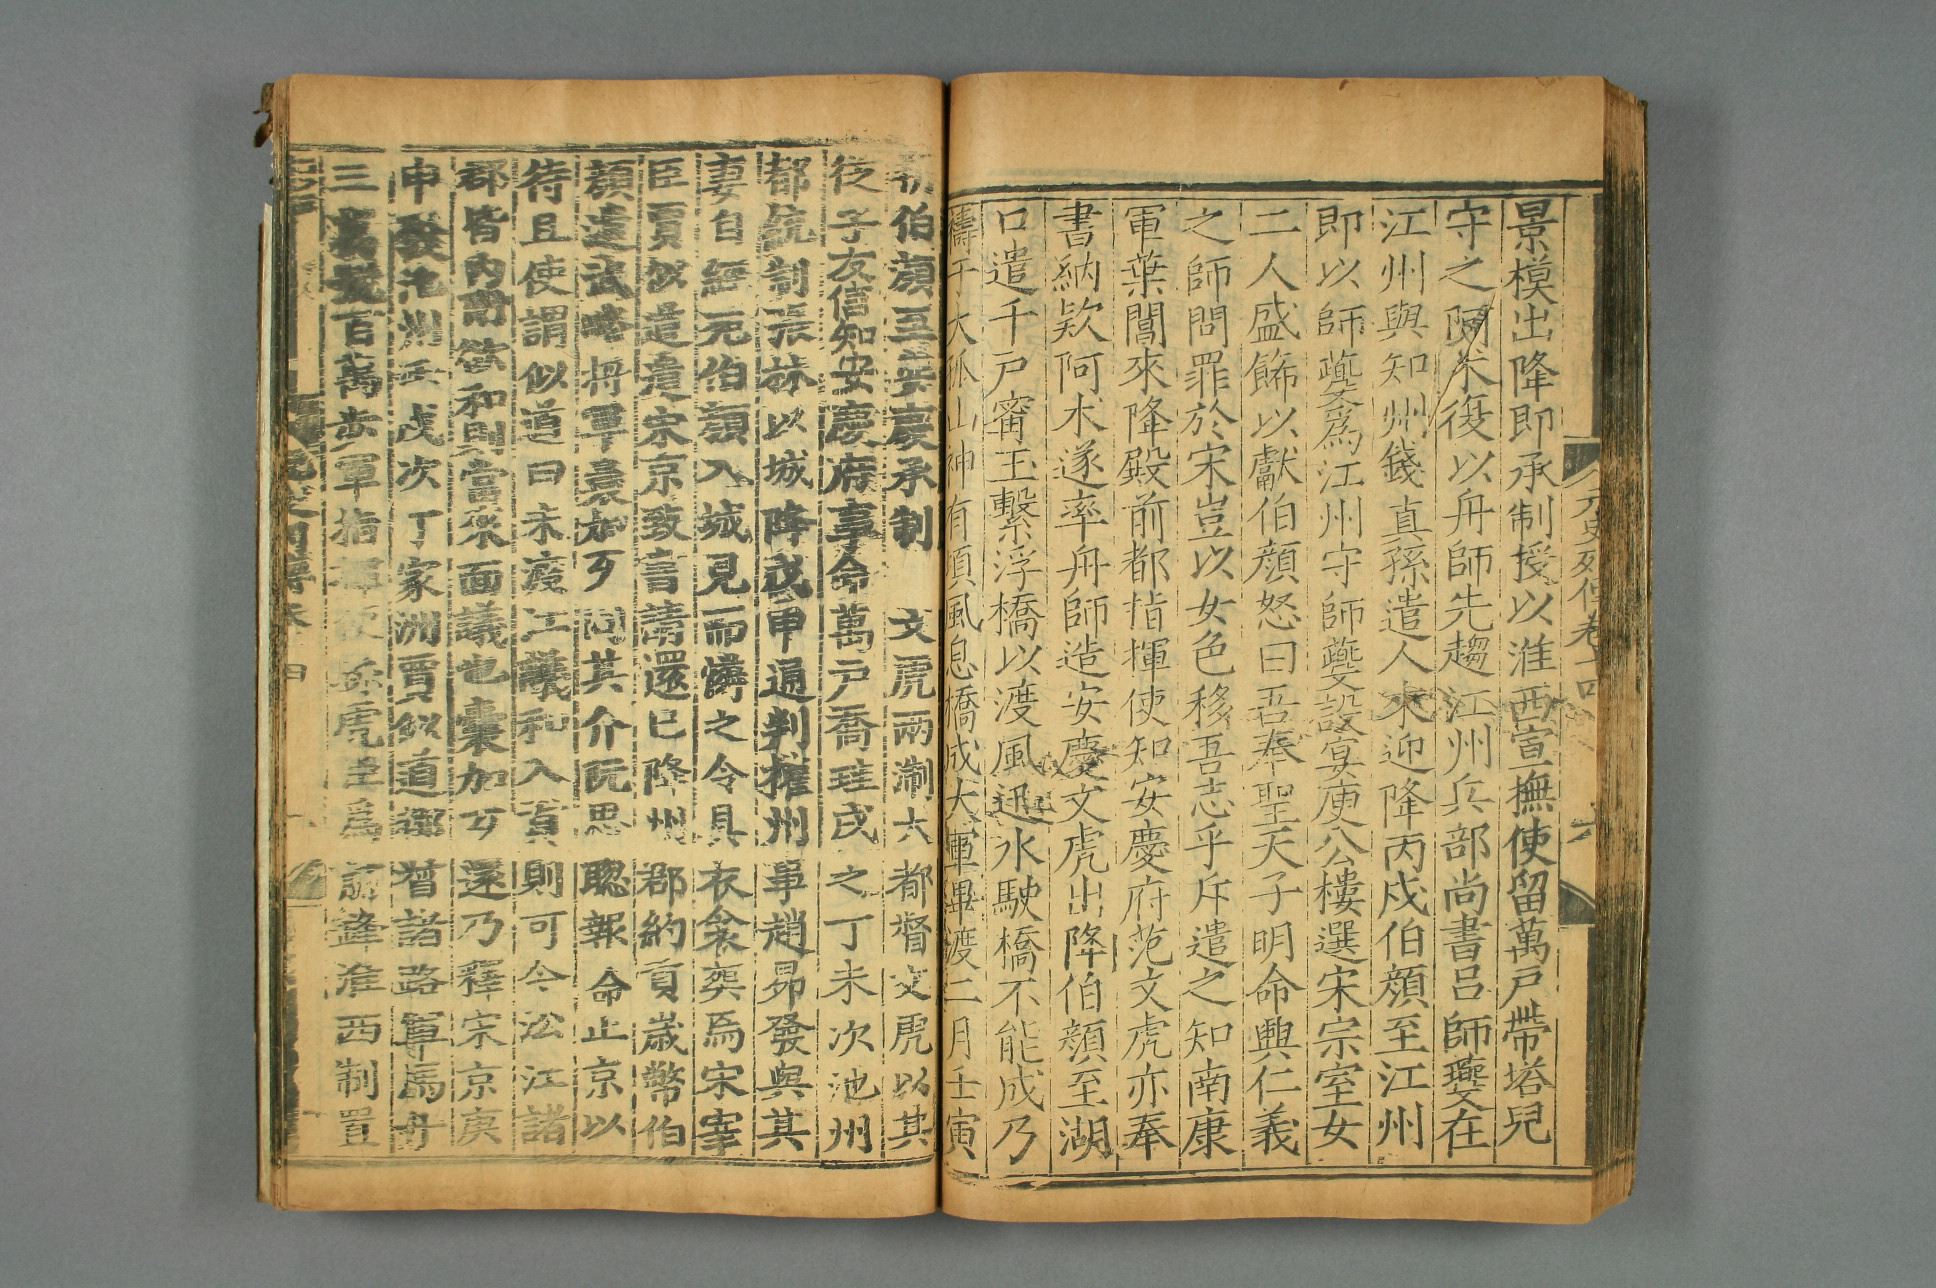 景模出降即承制授以淮西宣撫使留萬戸帶塔兒
守之阿朮復以舟師先趨江州兵部尚書吕師夔在
江州與知州錢真孫遣人來迎降丙戍伯顔至江州
即以師夔爲江州守師夔設宴庾公樓選宋宗室女
二人盛飾以獻伯顔怒曰吾奉聖天子明命興仁義
之師問罪於宋豈以女色移吾志乎斥遣之知南康
軍葉閶來降殿前都指揮使知安慶府范文虎亦奉
書納欵阿朮遂率舟師造安慶文虎出降伯顔至湖
口遣千戸甯玉繫浮橋以渡風迅水駛橋不能成乃
禱于大孤山神有頃風息橋成大軍畢渡二月壬寅
朔伯顔至安慶承制 文虎兩淛大都督文虎以其
從子友信知安慶府事命萬户喬珪戍之丁未次池州
都統制張林以城降戊申通判權州事趙昴發與其
妻自經死伯顔入城見而憐之令具衣衾葬焉宋宰
臣賈似道遣宋京致書請還已降州郡約貢歲幣伯
顔遣武略將軍囊加歹同其介阮思聰報命止京以
待且使謂似道曰未渡江議和入貢則可今㳂江諸
郡皆内附欲和則當來面議也囊加歹還乃釋宋京庚
申發池州壬戌次丁家洲賈似道都督諸路軍馬
三 百萬步軍指揮使孫虎臣爲前鋒淮西制置
元史列傳卷十四
六